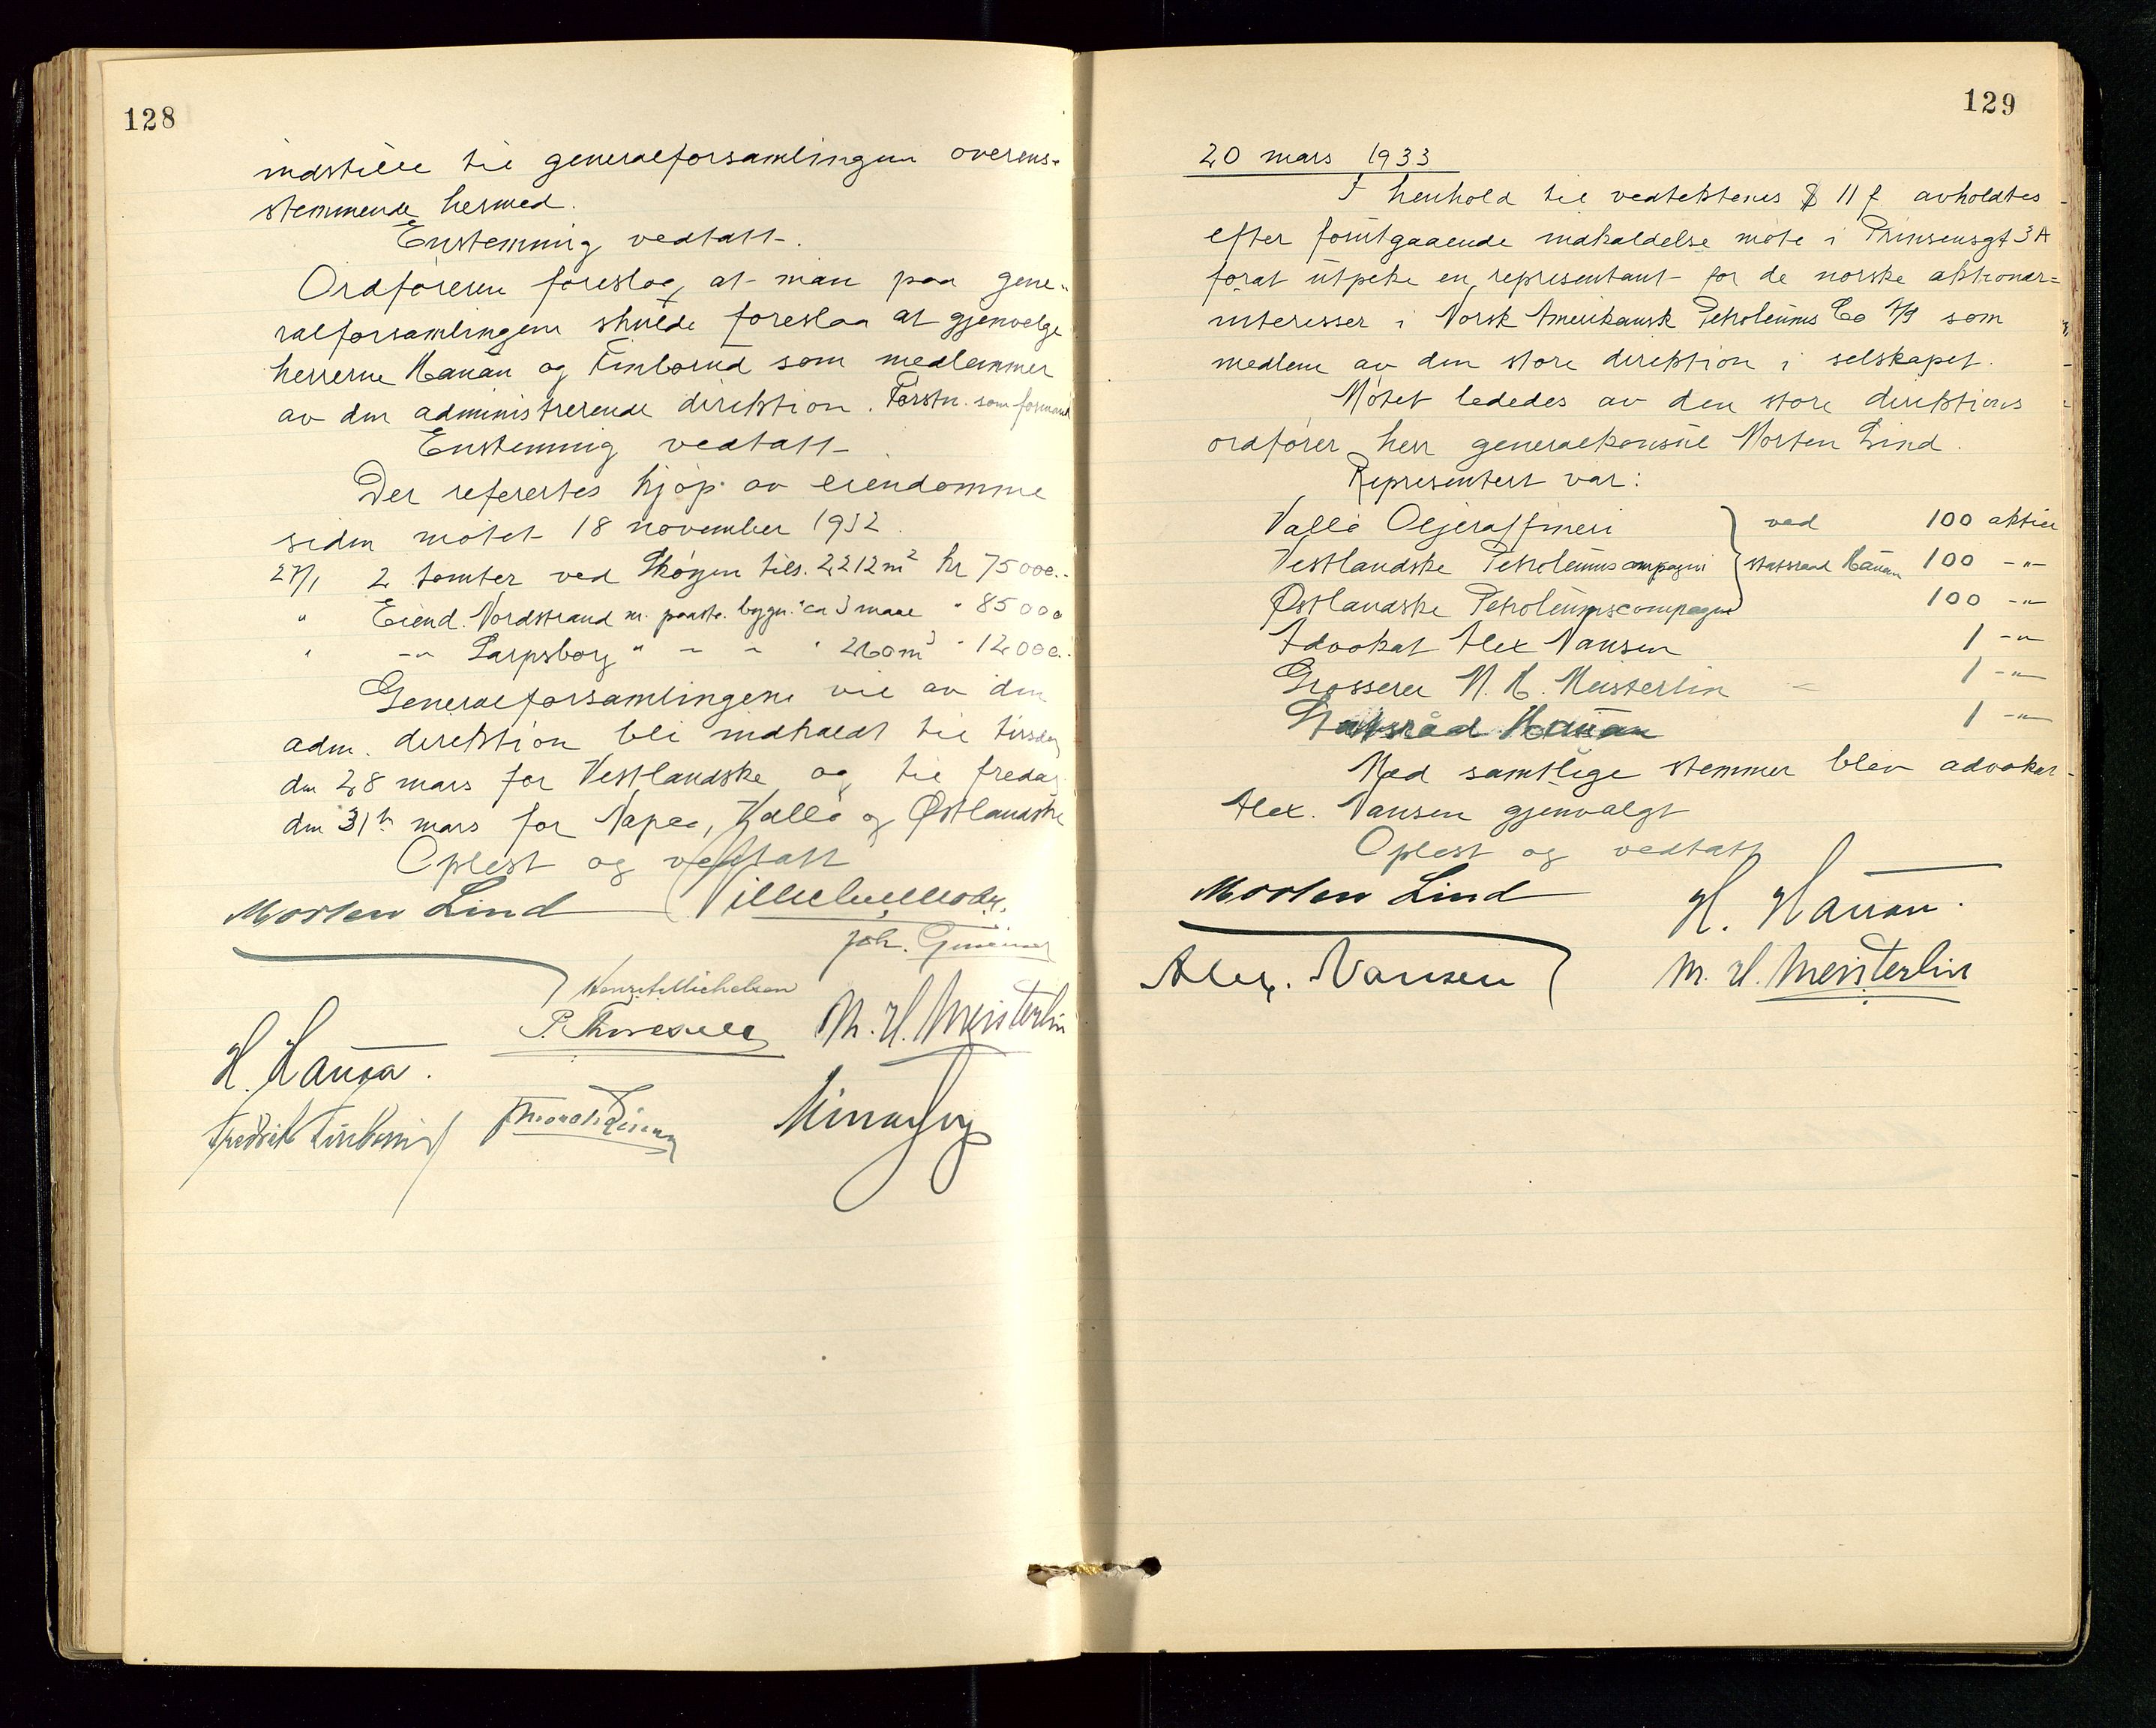 128
indstille til generalforsamlingen overens-
stemmende hermed.
Enstemmig vedtatt.
Ordføreren foreslog at man paa gene-
ralforsamlingene skulde foreslaa at gjenvelge
herrerne Hanan og Finborud som medlemmer
av den administrerende direktion. Førstn. som formand
Enstemmig vedtatt
Der refereertes kjøp av eiendomme
siden møtet 18 november 1932.
27/1 2 tomter ved Skøyen tils. 2212 m² kr 75000.-
" Eiend. Nordstrand m. paast. bygn. ca 3 maal " 85000
" -"- Sarpsborg " - - " 260 m² " 12000.-
Generalforsamlingene vil av den
adm. direktion bli indkaldt til tirsdag
den 28 mars for Vestlandske og til fredag
den 31te mars for Napco, Vallø og Østlandske
Oplest og vedtatt
Morten Lind
Joh.
M. H. Meisterlin
H.
129
20 mars 1933
I henhold til vedtektenes § 11 f avholdtes
efter forutgaaende indkaldelse møte i Prinsensgt 3A
forat utpeke en representant for de norske aktionær=
interesser i Norsk Amerikansk Petroleums Co A/S som
medlem av den store direktion i selskapet.
Møtet lededes av den store direktions
ordfører herr generalkonsul Morten Lind.
Representert var:
Vallø Oljeraffineri ved 100 aktier
Vestlandske Petroleumscompagni statsraad Hanan 100 -"-
Østlandske Petroleumscompagni 100 -"-
Advokat Alex Nansen 1 -"-
Grosserer M. H. Meisterlin 1 -"-
Statsråd Hanan 1 -"-
Med samtlige stemmer blev advokat
Alex. Nansen gjenvalgt
Oplest og vedtatt
Morten Lind
H. Hanan.
Alex. Nansen
M. H. Meisterlin